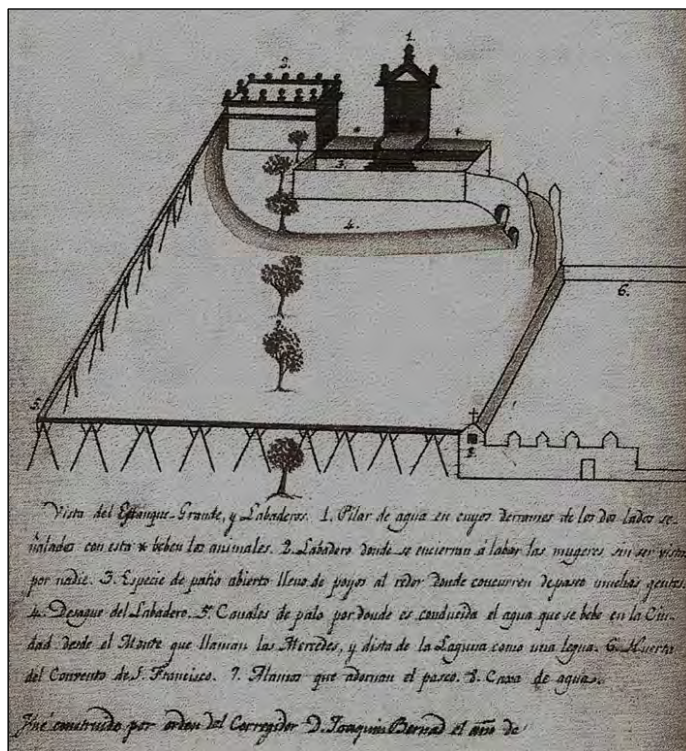 1.
2.
3.
4.
5.
6.
8
Vista del Estanque Grande, y Labaderos. 1. Pilar de agua en cuyos derrames de los dos lados se-
ñalados con esta * beben los animales. 2. Labadero donde se encierran á labar las mugeres sin ser vistas
por nadie. 3. Especie de patio abierto lleno de poyos al rrdor donde concurren de paseo muchas gentes.
4. Desague del Labadero. 5. Canales de palo por donde es conducida el agua que se bebe en la Ciu-
dad desde el Monte que llaman las Mercedes, y dista de la Laguna como una legua. 6. Huerta
del Convento de S. Francisco. 7. Alamos que adornan el paseo. 8. Caxa de agua.
Fué construido por orden del Corregidor D. Joaquin Bernad el año de